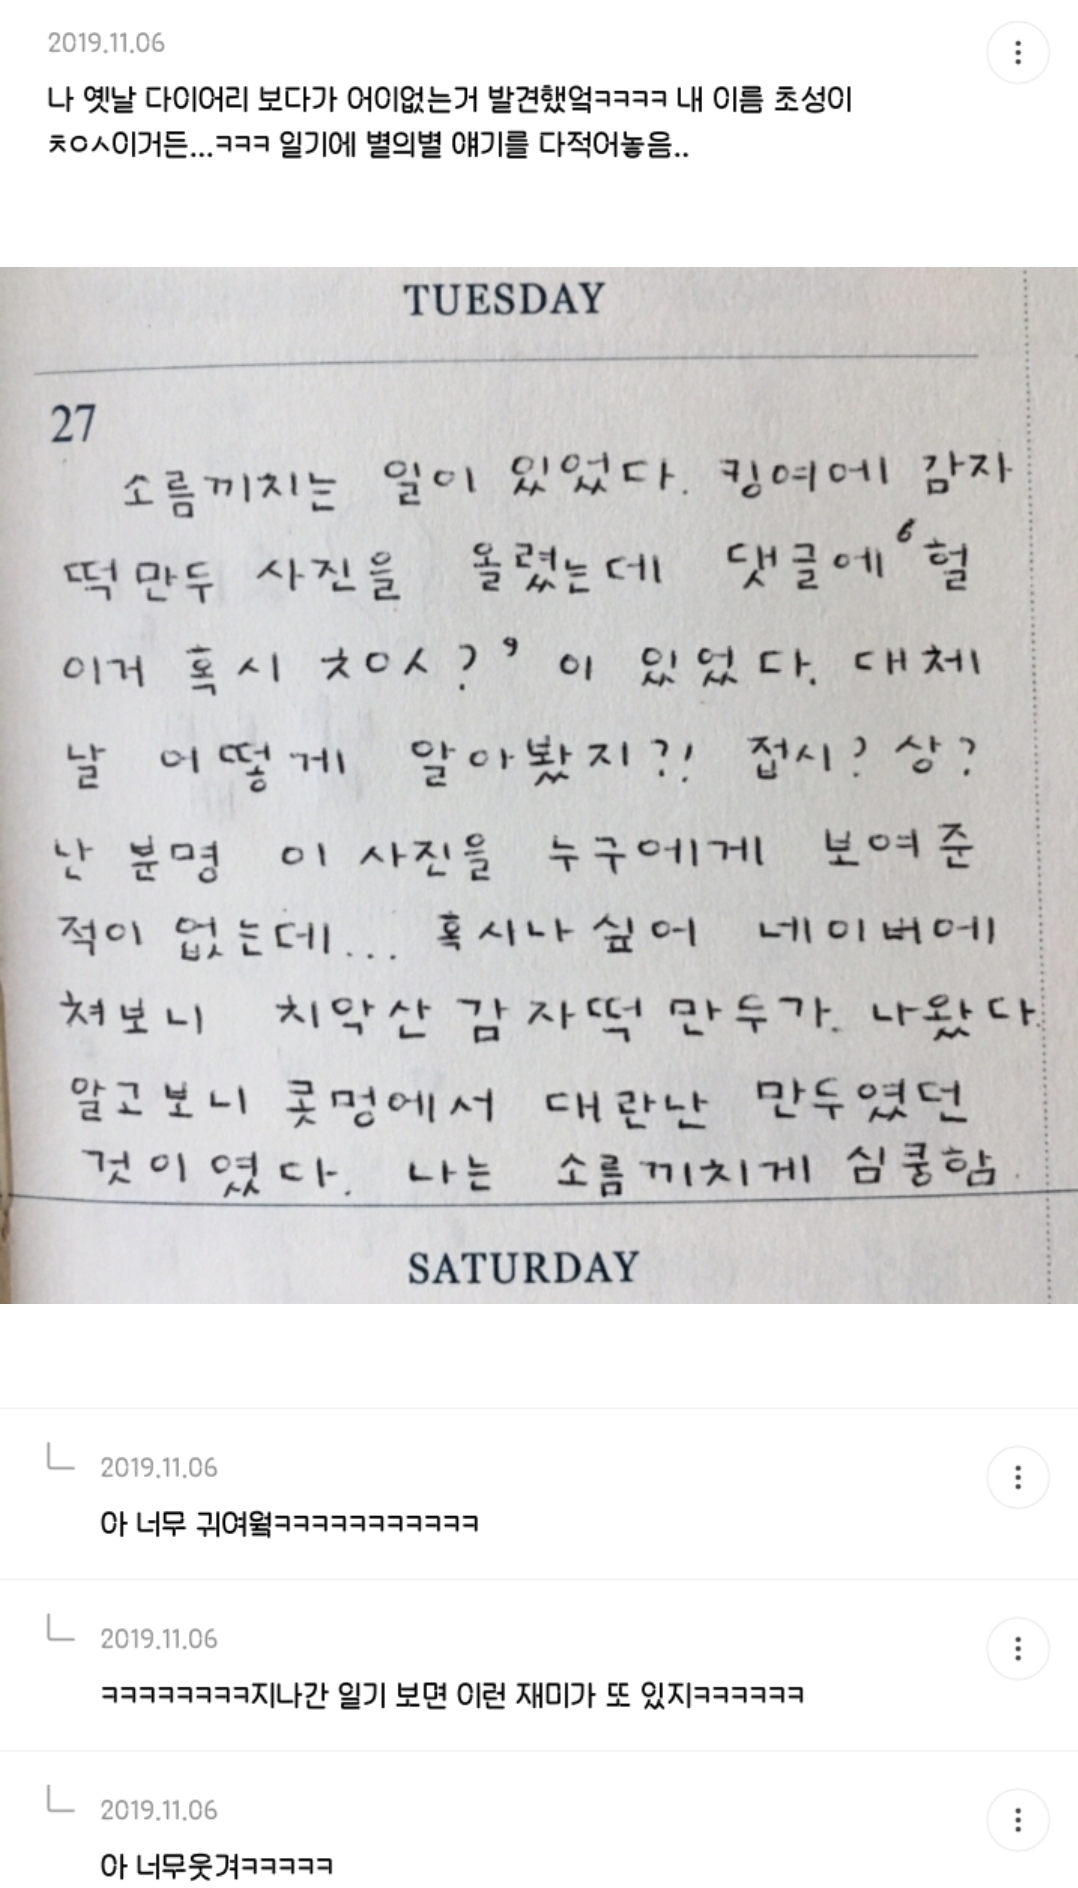 2019.11.06
나 옛날 다이어리 보다가 어이없는거 발견했엌ㅋㅋㅋㅋ 내 이름 초성이
ㅊㅇㅅ이거든...ㅋㅋㅋ 일기에 별의별 얘기를 다적어놓음..
TUESDAY
27
소름끼치는 일이 있었다. 킹여에 감자
떡만두 사진을 올렸는데 댓글에 ‘헐
이거 혹시 ㅊㅇㅅ?’ 이 있었다. 대체
날 어떻게 알아봤지?! 접시? 상?
난 분명 이 사진을 누구에게 보여준
적이 없는데... 혹시나 싶어 네이버에
쳐보니 치악산 감자떡만두가 나왔다.
알고보니 콧멍에서 대란난 만두였던
것이였다. 나는 소름끼치게 심쿵함.
SATURDAY
2019.11.06
아 너무 귀여웤ㅋㅋㅋㅋㅋㅋㅋㅋㅋㅋㅋ
2019.11.06
ㅋㅋㅋㅋㅋㅋㅋㅋ지나간 일기 보면 이런 재미가 또 있지ㅋㅋㅋㅋㅋㅋ
2019.11.06
아 너무웃겨ㅋㅋㅋㅋㅋ